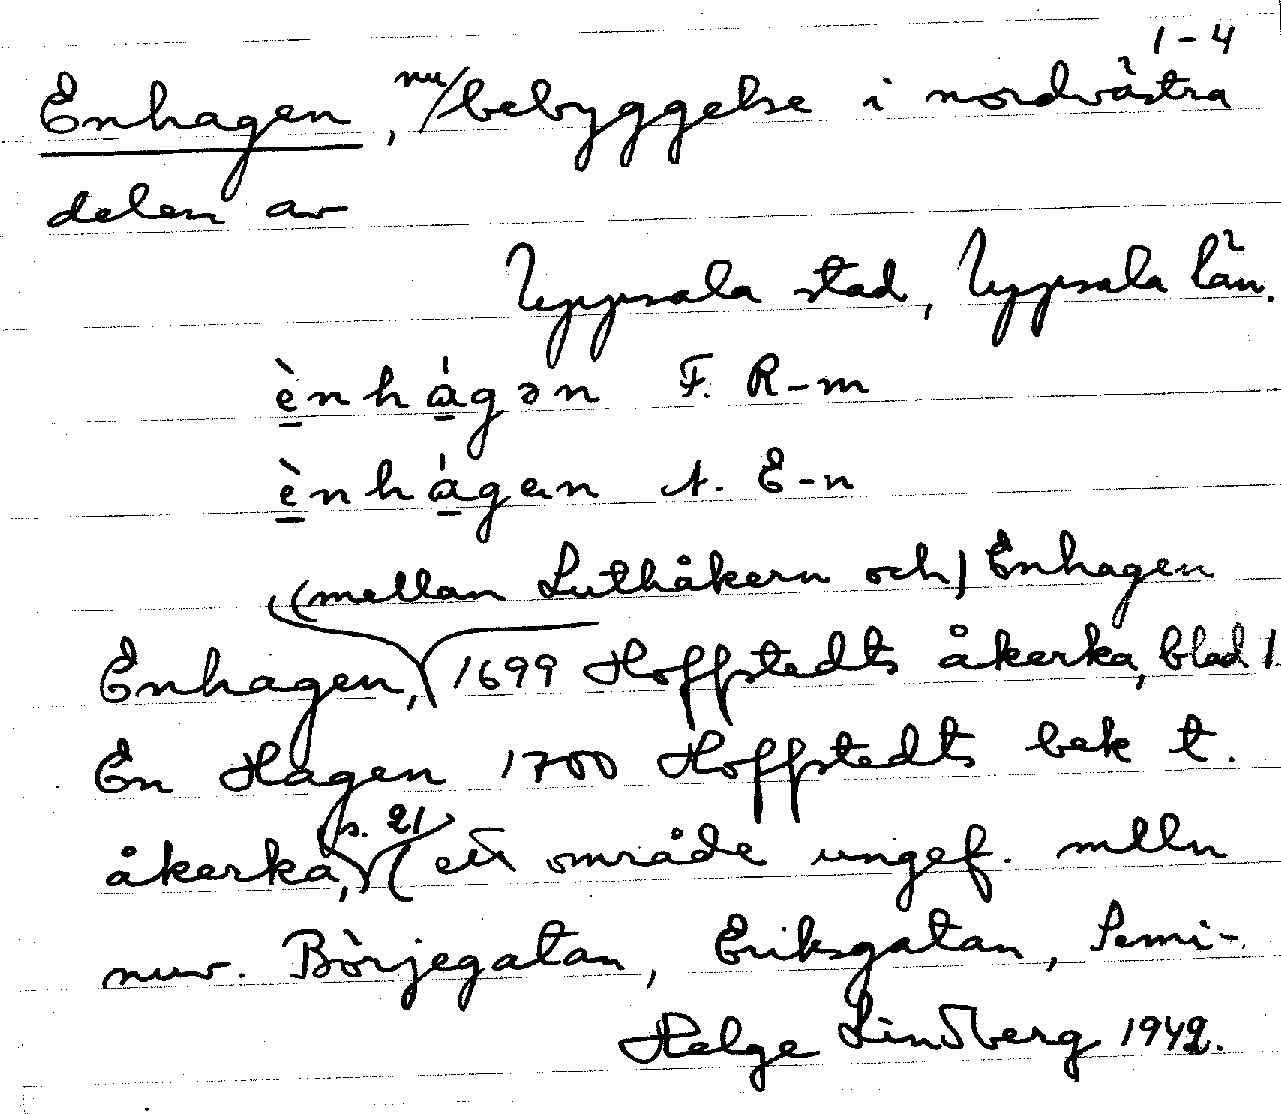 1-4
Enhagen, nu/bebyggelse i nordvästra
delen av
Uppsala stad, Uppsala län.
ènhágən F. R-m
ènhágen A. E-n
(mellan Luthåkern och) Enhagen
Enhagen, 1699 Hoffstedts åkerka, blad 1.
En Hagen 1700 Hoffstedts bek t.
åkerka, s. 21 (ett område ungef. mlln
nuv. Börjegatan, Eriksgatan, Semi-
Helge Lindberg 1942.